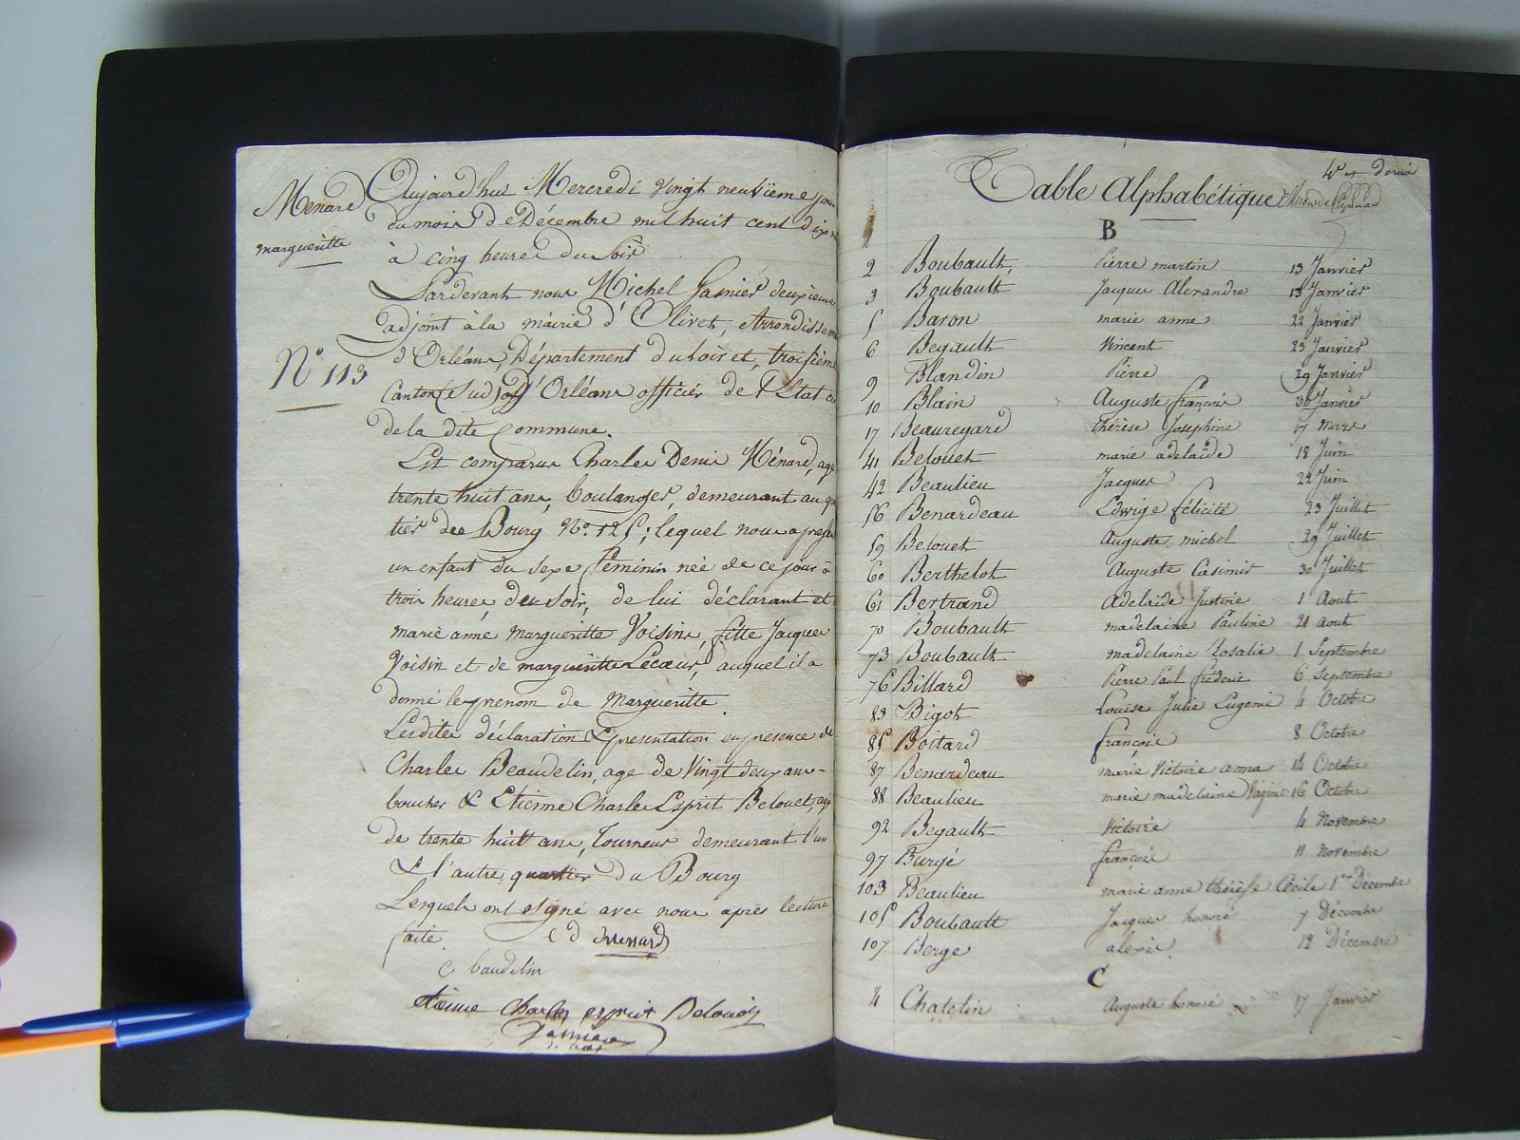 Menard
marguerittte
N° 113
Aujourd'hui Mercredi Vingt neuvieme jour
du mois de Décembre mil huit cent dix
à cinq heures du Soir
Pardevant nous Michel Gasnier deuxieme
adjoint à la mairie d'Olivet, Arrondisseme
d'Orléans, Département du Loiret, troisième
Canton (Sud) d'Orléans officier de l'Etat ci
de la dite Commune.
Est comparu Charles Denis Ménard, agé
trente huit ans, boulanger, demeurant au qu
tier du Bourg N° 125; lequel nous a presen
un enfant du Sexe feminin née de ce jour à
trois heures du Soir, de lui déclarant et
marie anne margueritte Voisin, fille Jacques
Voisin et de margueritte Lecoeur, auquel il a
donné le prenom de Margueritte.
Lesdites déclaration & presentation en presence de
Charles Beaudelin, age de Vingt deux ans
boucher & Etienne Charles Esprit Belouet, agé
de trente huit ans, Tourneur demeurant l'un
& l'autre quartier du Bourg
Lesquels ont signé avec nous après lecture
faite. C D Menard
C baudelin
etienne Charles esprit Belouet
Table Alphabétique
B
2 Boubault, Pierre martin 13 Janvier
3 Boubault Jacques Alexandre 13 Janvier
5 Baron marie anne 22 Janvier
6 Begault Vincent 23 Janvier
9 Blandin Pierre 29 Janvier
10 Blain Auguste françois 30 Janvier
17 Beauregard thérèse Josephine 17 mars
41 Belouet marie adelaïde 18 Juin
42 Beaulieu Jacques 22 Juin
56 Benardeau Edwige félicité 23 Juillet
59 Belouet Auguste michel 29 Juillet
60 Berthelot Auguste Casimir 30 Juillet
61 Bertrand Adelaïde Justine 1 Aout
70 Boubault madelaine Pauline 21 aout
73 Boubault madelaine Rosalie 1 Septembre
76 Billard Pierre Paul frédéric 6 Septembre
83 Bigot Louise Julie Eugenie 4 Octobre
85 Boitard françois 8 Octobre
87 Benardeau marie Victoire anna 14 Octobre
88 Beaulieu marie madelaine Virginie 16 Octobre
92 Begault Victoire 4 Novembre
97 Burgé françois 11 Novembre
103 Beaulieu marie anne thérèse Cécile 1er Décembre
105 Boubault Jacques honoré 7 Décembre
107 Berge alexis 12 Décembre
C
4 Chatelin Auguste honoré 17 Janvier